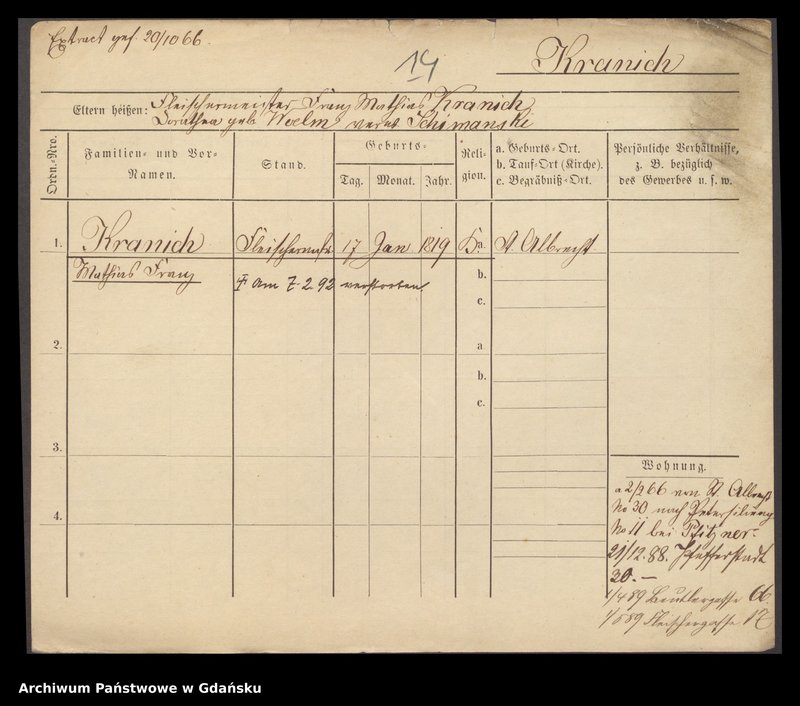 Extract gef. 20/10 66.
14
Kranich
Eltern heißen: Fleischermeister Franz Mathias Kranich
Dorathea geb. Woelm verw. Schimanski
Ordn.-Nro.
Familien- und Vor-
Namen.
Stand.
Geburts-
Tag. Monat. Jahr.
Reli-
gion.
a. Geburts-Ort.
b. Tauf-Ort (Kirche).
c. Begräbniß-Ort.
Persönliche Verhältnisse,
z. B. bezüglich
des Gewerbes u. s. w.
1. Kranich 17 Jan 1819 a. St. Albrecht
Mathias Franz
† am 7. 2. 92 verstorben.
b.
c.
2. a.
b.
c.
3.
4.
Wohnung.
a 2/2 66 von St. Albrecht
No 30 nach
No 11 bei Pfitzner
21/12. 88. Pfefferstadt
30.—
1/4 89 Beutlergasse
Fleischergasse 17
Archiwum Państwowe w Gdańsku